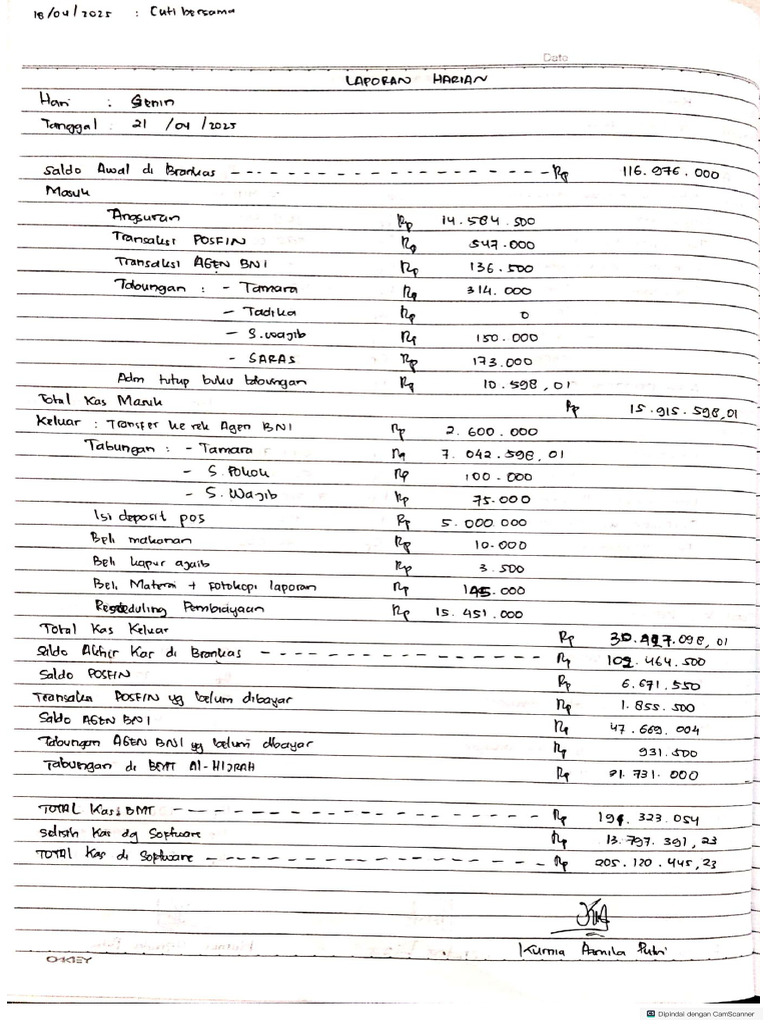 18/04/2025 : Cuti bersama
Date
LAPORAN HARIAN
Hari : Senin
Tanggal : 21 /04 /2025
Saldo Awal di Brankas - - - - - - - - - - - - - - - - - - - Rp 116.976.000
Masuk
Angsuran Rp 14.584.500
Transaksi POSFIN Rp 547.000
Transaksi AGEN BNI Rp 136.500
Tabungan : - Tamara Rp 314.000
- Tadika Rp 0
- S.wajib Rp 150.000
- SARAS Rp 173.000
Adm tutup buku tabungan Rp 10.598,01
Total Kas Masuk Rp 15.915.598,01
Keluar : Transfer ke rek Agen BNI Rp 2.600.000
Tabungan : - Tamara Rp 7.042.598,01
- S.Pokok Rp 100.000
- S.Wajib Rp 75.000
Isi deposit pos Rp 5.000.000
Beli makanan Rp 10.000
Beli kapur ajaib Rp 3.500
Beli Materai + fotokopi laporan Rp 145.000
Resceduling Pembiayaan Rp 15.451.000
Total Kas Keluar Rp 30.427.098,01
Saldo Akhir Kas di Brankas - - - - - - - - - - - - - - - - Rp 102.464.500
Saldo POSFIN Rp 6.671.550
Transaksi POSFIN yg belum dibayar Rp 1.855.500
Saldo AGEN BNI Rp 47.669.004
Tabungan AGEN BNI yg belum dibayar Rp 931.500
Tabungan di BMT Al-HIJRAH Rp 31.731.000
TOTAL Kas BMT - - - - - - - - - - - - - - - - - - - Rp 191.323.054
Selisih Kas dg Software Rp 13.797.391,23
TOTAL Kas di Software - - - - - - - - - - - - - - - - - Rp 205.120.445,23
Kurnia Asmila Putri
OKEY
Dipindai dengan CamScanner